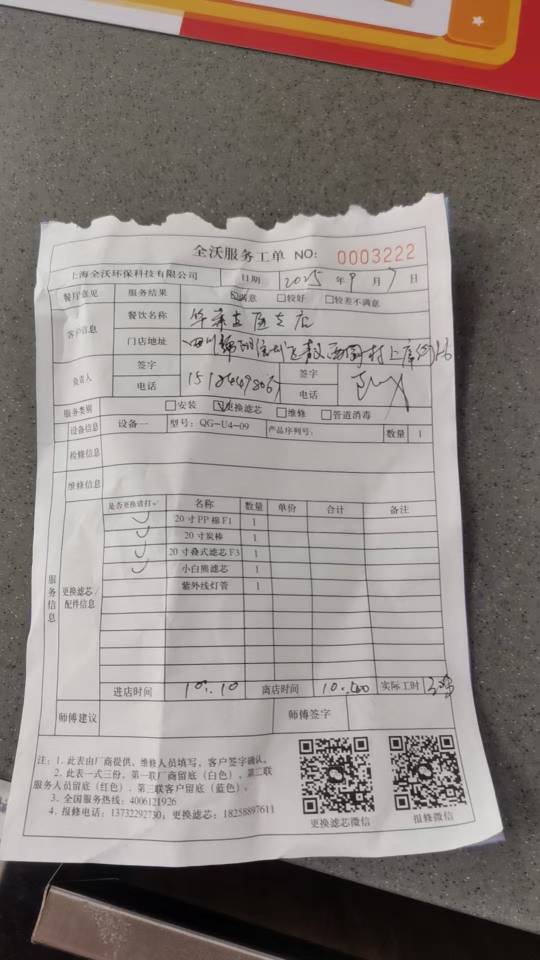 全沃服务工单 NO: 0003222
上海全沃环保科技有限公司 日期 2025 年 9 月 7 日
餐厅意见 服务结果 ☑满意 □较好 □较差不满意
客户信息 餐饮名称
门店地址 四川绵阳
负责人 签字 签字
电话 电话
服务类别 □安装 ☑更换滤芯 □维修 □管道消毒
设备信息 设备一 型号: QG-U4-09 产品序列号: 数量 1
检修信息
维修信息
服务信息 更换滤芯/配件信息
是否更换请打✓ 名称 数量 单价 合计 备注
✓ 20寸PP棉F1 1
✓ 20寸炭棒 1
✓ 20寸叠式滤芯F3 1
✓ 小白熊滤芯 1
紫外线灯管 1
进店时间 10:10 离店时间 10:40 实际工时
师傅建议 师傅签字
注: 1. 此表由厂商提供、维修人员填写、客户签字确认。
2. 此表一式三份，第一联厂商留底（白色）、第二联
服务人员留底（红色）、第三联客户留底（蓝色）。
3. 全国服务热线: 4006121926
4. 报修电话: 13732292730; 更换滤芯: 18258897611
更换滤芯微信 报修微信